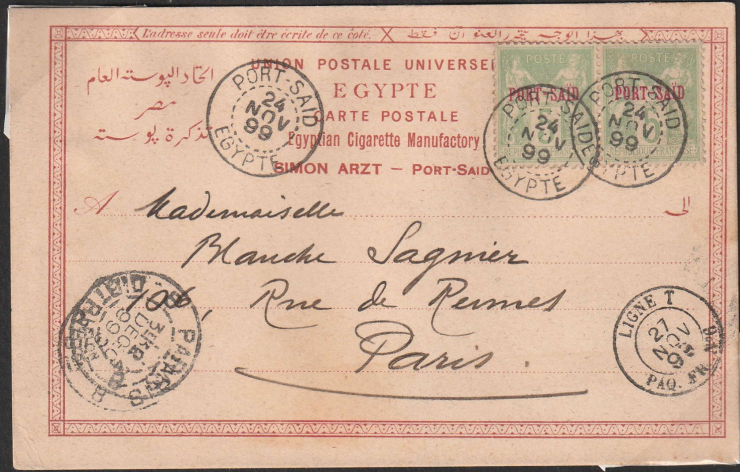 L'adresse seule doit être écrite de ce côté.
UNION POSTALE UNIVERSE
اتحاد البوستة العام
EGYPTE
مصر
CARTE POSTALE
تذكرة بوستة
Egyptian Cigarette Manufactory
SIMON ARZT — PORT-SAID
POSTE
PORT-SAID
POSTE
PORT-SAID
PORT-SAID
24
NOV
99
EGYPTE
PORT-SAID
24
NOV
99
EGYPTE
PORT-SAID
24
NOV
99
EGYPTE
A
الى
Mademoiselle
Blanche Sagnier
106, Rue de Rennes
Paris.
PARIS
DISTRIB
LIGNE T
27
NOV
99
PAQ. FR